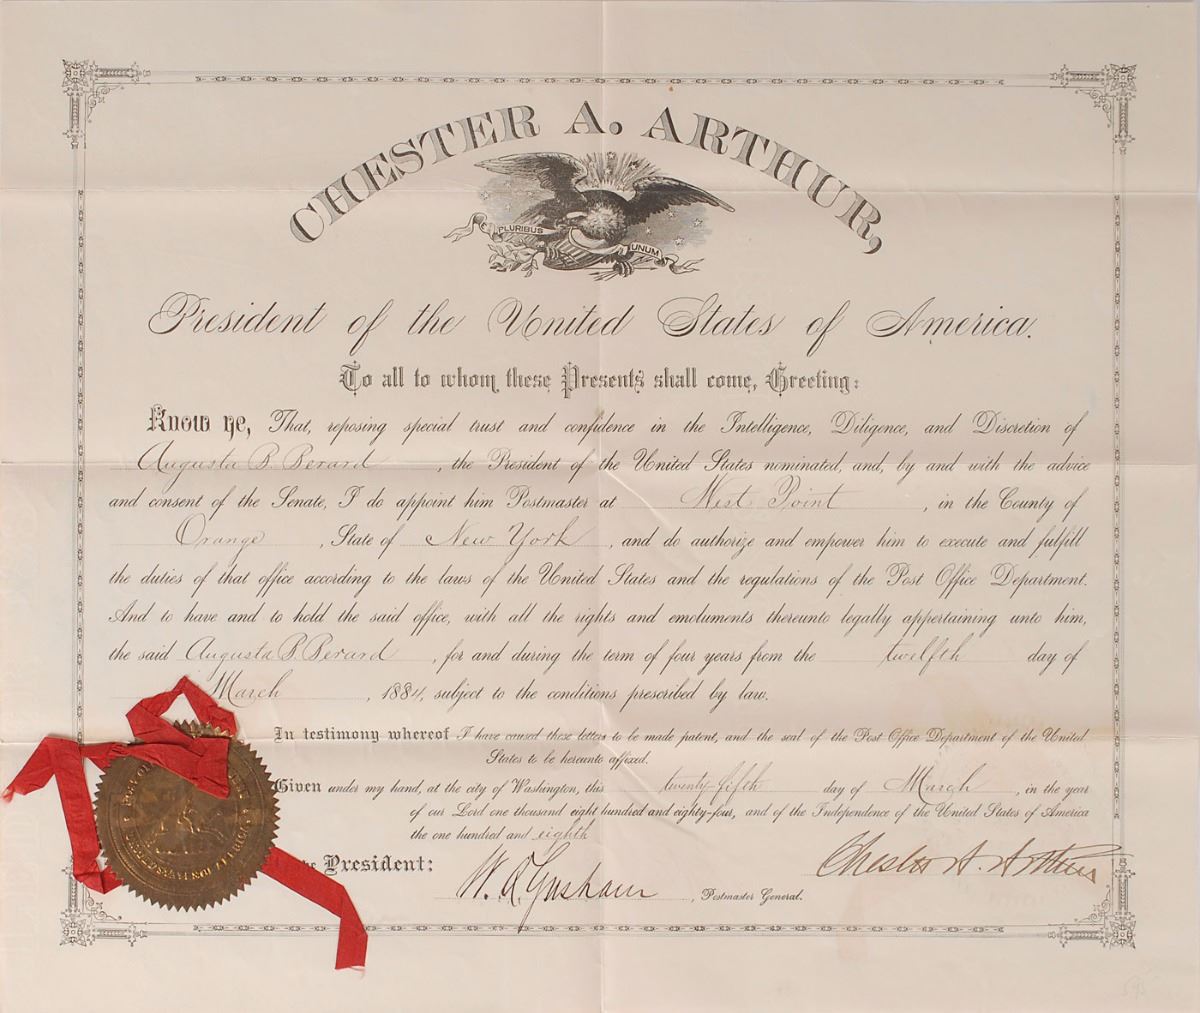 CHESTER A. ARTHUR,
E PLURIBUS UNUM
President of the United States of America.
To all to whom these Presents shall come, Greeting:
Know ye, That, reposing special trust and confidence in the Intelligence, Diligence, and Discretion of
Augusta B. Berard, the President of the United States nominated, and, by and with the advice
and consent of the Senate, I do appoint him Postmaster at West Point, in the County of
Orange, State of New York, and do authorize and empower him to execute and fulfill
the duties of that office according to the laws of the United States and the regulations of the Post Office Department.
And to have and to hold the said office, with all the rights and emoluments thereunto legally appertaining unto him,
the said Augusta B. Berard, for and during the term of four years from the twelfth day of
March, 1884, subject to the conditions prescribed by law.
In testimony whereof I have caused these letters to be made patent, and the seal of the Post Office Department of the United
States to be hereunto affixed.
Given under my hand, at the city of Washington, this twenty-fifth day of March, in the year
of our Lord one thousand eight hundred and eighty-four, and of the Independence of the United States of America
the one hundred and eighth
the President:
Chester A. Arthur
W. Q. Gresham, Postmaster General.